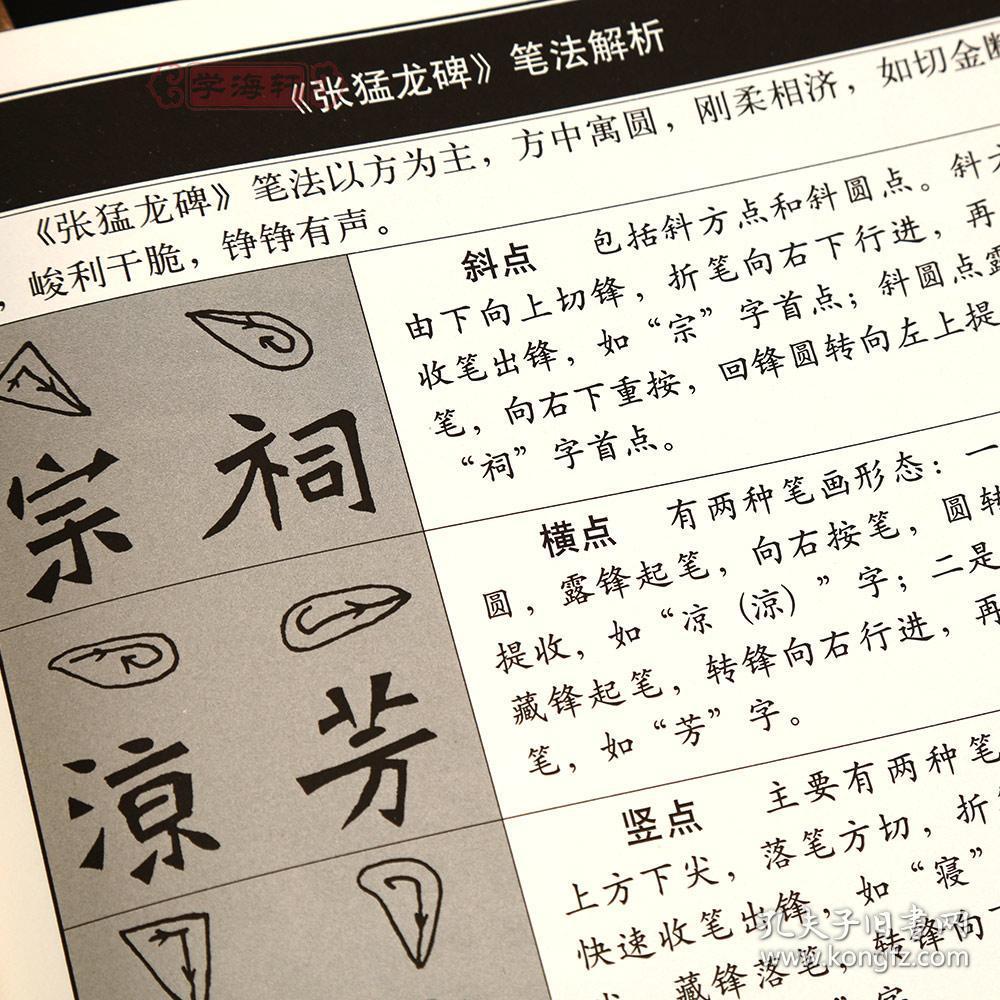 学海轩
《张猛龙碑》笔法解析
《张猛龙碑》笔法以方为主，方中寓圆，刚柔相济，如切金断
，峻利干脆，铮铮有声。
斜点 包括斜方点和斜圆点。斜
由下向上切锋，折笔向右下行进，再
收笔出锋，如“宗”字首点；斜圆点露
笔，向右下重按，回锋圆转向左上提
“祠”字首点。
宗 祠
横点 有两种笔画形态：一
圆，露锋起笔，向右按笔，圆转
提收，如“凉（涼）”字；二是
藏锋起笔，转锋向右行进，再
笔，如“芳”字。
涼 芳
竖点 主要有两种笔
上方下尖，落笔方切，折
快速收笔出锋，如“寝”
藏锋落笔，转锋向
字
孔夫子旧书网
www.kongfz.com